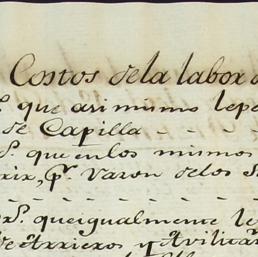 Costos de la labor d
s. que asimismo lepe
de Capilla - - -
s. que en los mismos
rix, pr. varon delos S
rs. que igualmente le
de Arrieros y Avilitan